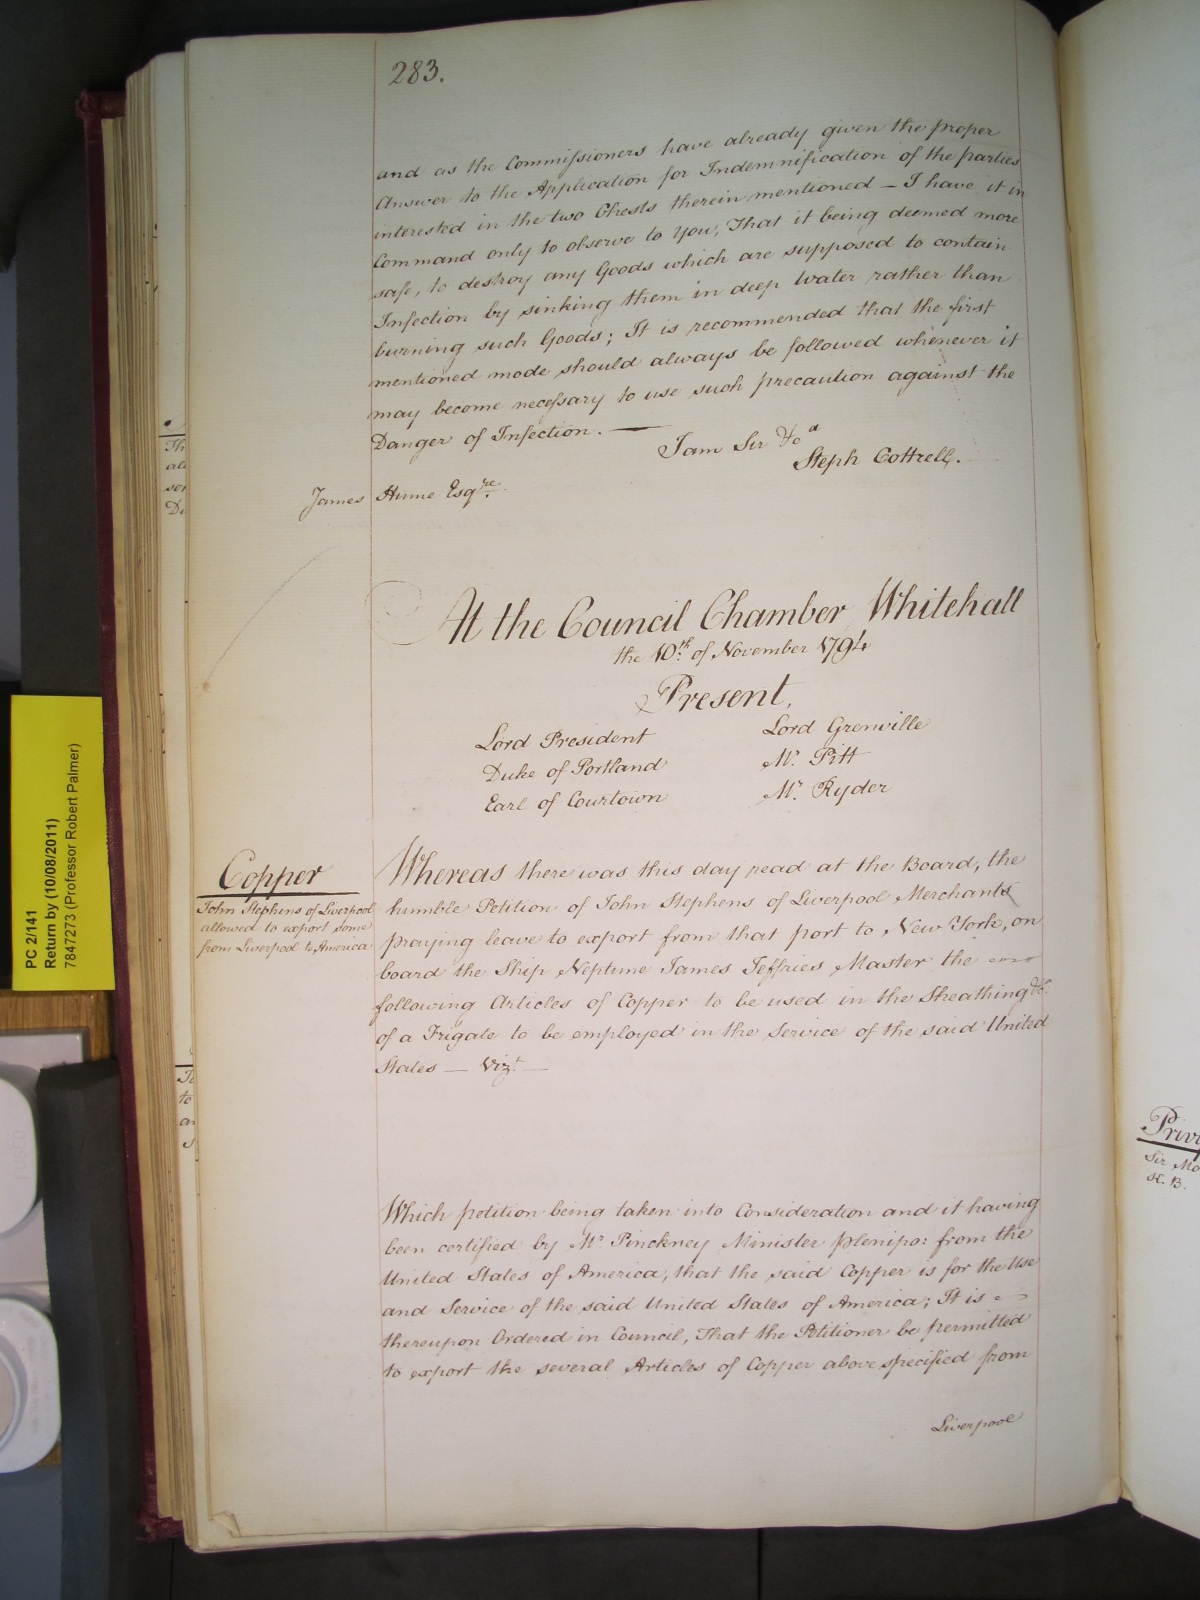 283.
and as the Commissioners have already given the proper
Answer to the Application for Indemnification of the parties
interested in the two Chests therein mentioned – I have it in
Command only to observe to You, That it being deemed more
safe, to destroy any Goods which are supposed to contain
Infection by sinking them in deep Water rather than
burning such Goods; It is recommended that the first
mentioned mode should always be followed whenever it
may become necessary to use such precaution against the
Danger of Infection. —
I am Sir &c.a
Steph Cottrell.
James Hume Esqre.
At the Council Chamber Whitehall
the 10th of November 1794
Present,
Lord President
Duke of Portland
Earl of Courtown
Lord Grenville
Mr. Pitt
Mr. Ryder
Copper
John Stephens of Liverpool
allowed to export some
from Liverpool to America
Whereas there was this day read at the Board, the
humble Petition of John Stephens of Liverpool Merchant
praying leave to export from that port to New York, on
board the Ship Neptune James Jeffries Master the
following Articles of Copper to be used in the Sheathing &c.
of a Frigate to be employed in the Service of the said United
States — Vizt. —
Which petition being taken into Consideration and it having
been certified by Mr Pinckney Minister plenipo: from the
United States of America, that the said Copper is for the Use
and Service of the said United States of America; It is
thereupon Ordered in Council, That the Petitioner be permitted
to export the several Articles of Copper above specified from
Liverpool
PC 2/141
Return by (10/08/2011)
7847273 (Professor Robert Palmer)
Sir Mo
H. B.